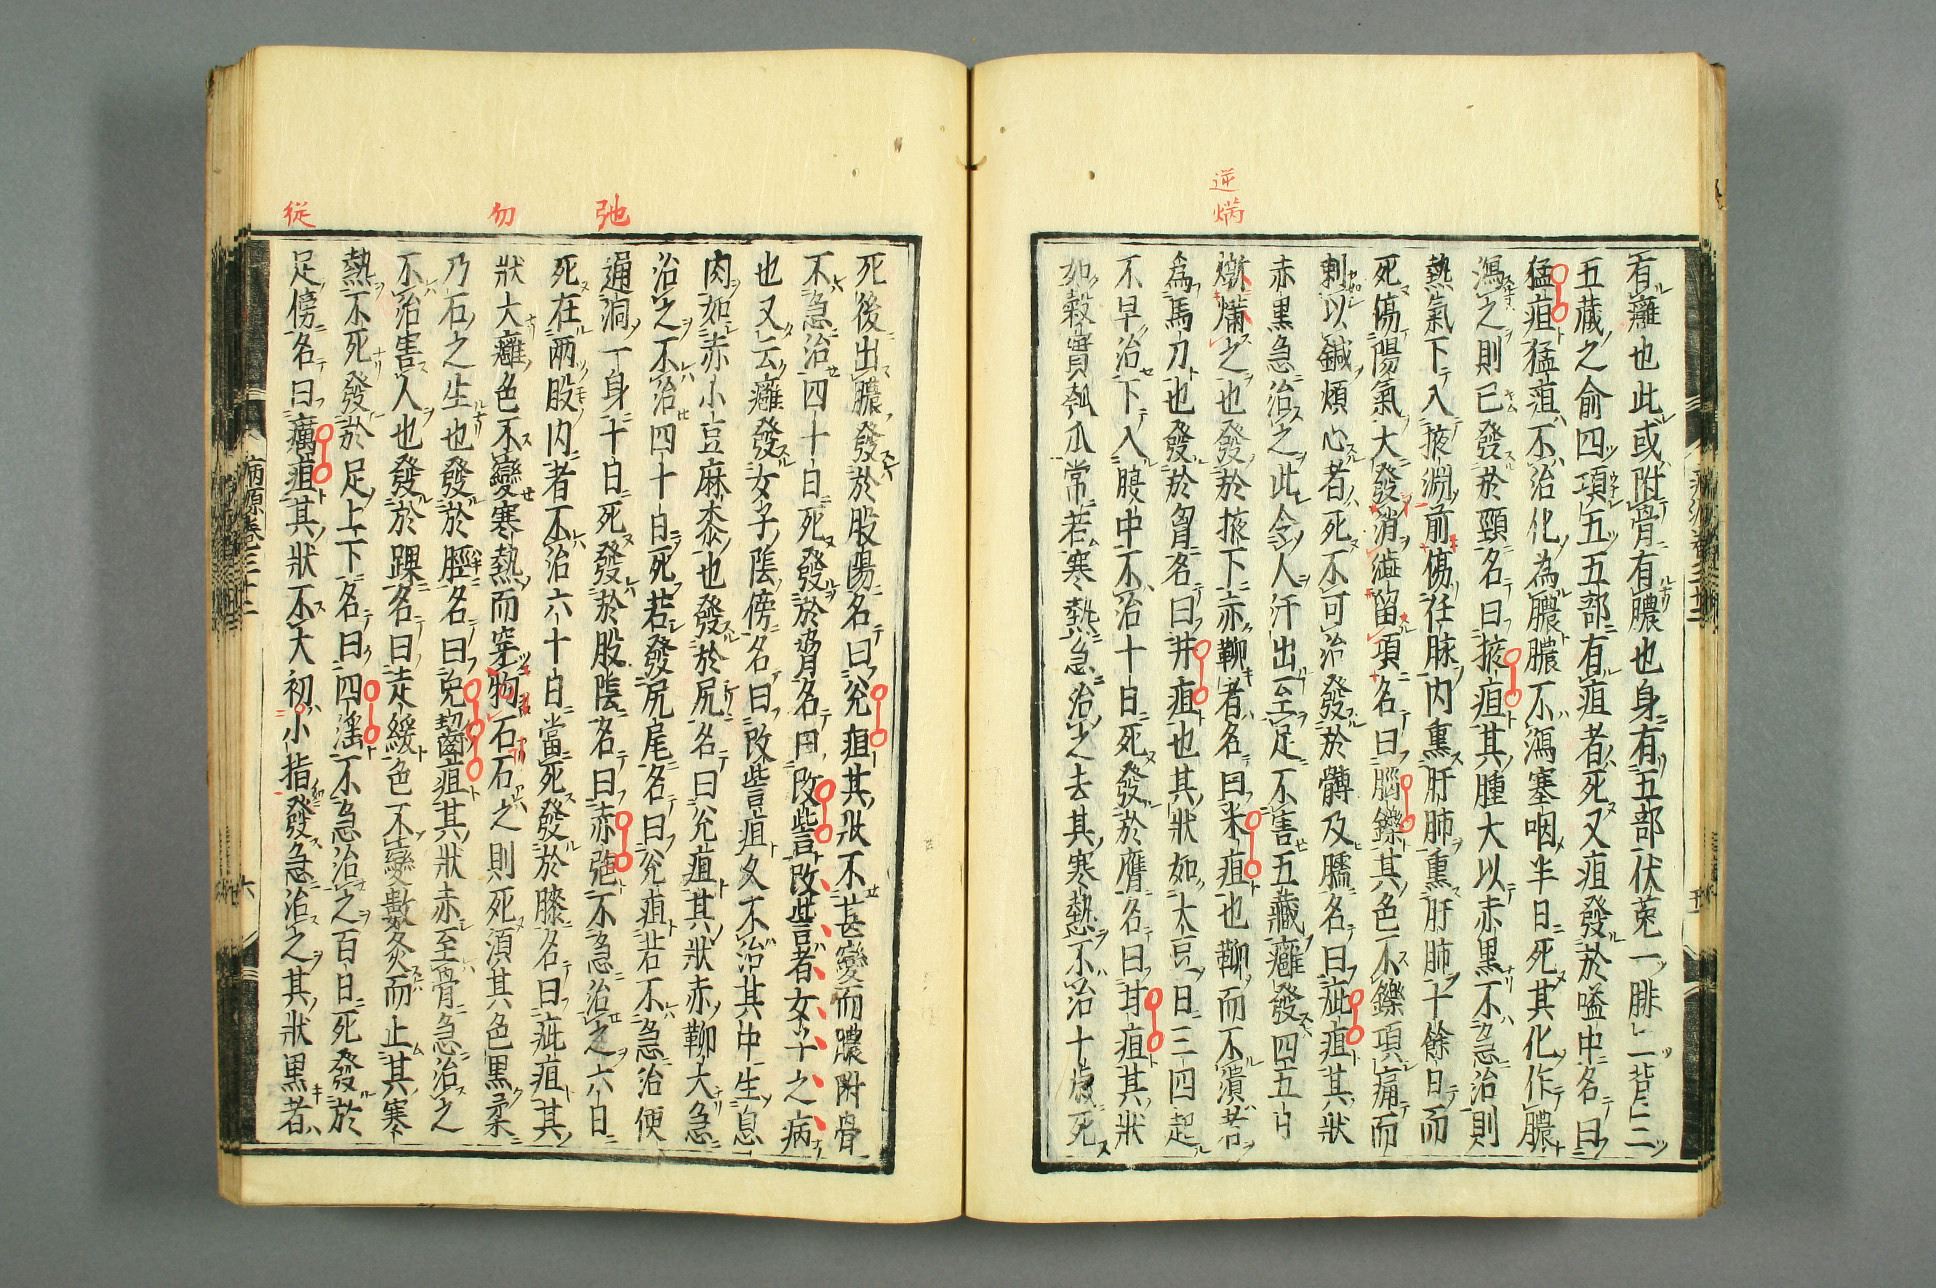 逆
焫
有癰也此或附骨有膿也身有五部伏菟一腓二背三
五蔵之俞四項五五部有疽者死又疽發於嗌中名曰
猛疽猛疽不治化為膿膿不瀉塞咽半日死其化作膿
瀉之則已發於頸名曰掖疽其腫大以赤黒不急治則
熱氣下入掖淵前傷任脉内熏肝肺熏肝肺十餘日而
死傷陽氣大發消㴉留項名曰腦鑠其色不鑠項痛而
刺以鍼煩心者死不可治發於髆及臑名曰疵疽其狀
赤黒急治之此令人汗出至足不害五蔵癰發四五日
之也發於掖下亦鞕者名曰米疽也鞕而不潰若
為馬刀也發於胷名曰井疽也其狀如大豆日三四起
不早治下入腹中不治十日死發於膺名曰甘疽其狀
如穀實瓜常若寒熱急治之去其寒熱不治十歳死
死後出膿發於股陽名曰兊疽其狀不甚變而膿附骨
不急治四十日死發於脅名曰改訾改訾者女子之病
也又云癰發女子陰傍名曰改訾疽久不治其中生息
肉如赤小豆麻黍也發於尻名曰兊疽其狀赤鞕大急
治之不治四十日死若發尻尾名曰兊疽若不急治便
通洞一身十日死發於股陰名曰赤弛不急治之六日
死在両股内者不治六十日當死發於膝名曰疵疽其
狀大癰色不變寒熱而㝎物石石之則死須其色黒柔
乃石之生也發於脛名曰兔齧疽其狀赤至骨急治之
不治害人也發於踝名曰走緩色不變數灸而止其寒
熱不死發於足上下名曰四滛不急治之百日死發於
足傍名曰癘疽其狀不大初小指發急治之其狀黒者
弛
勿
従
病原巻三十二
六